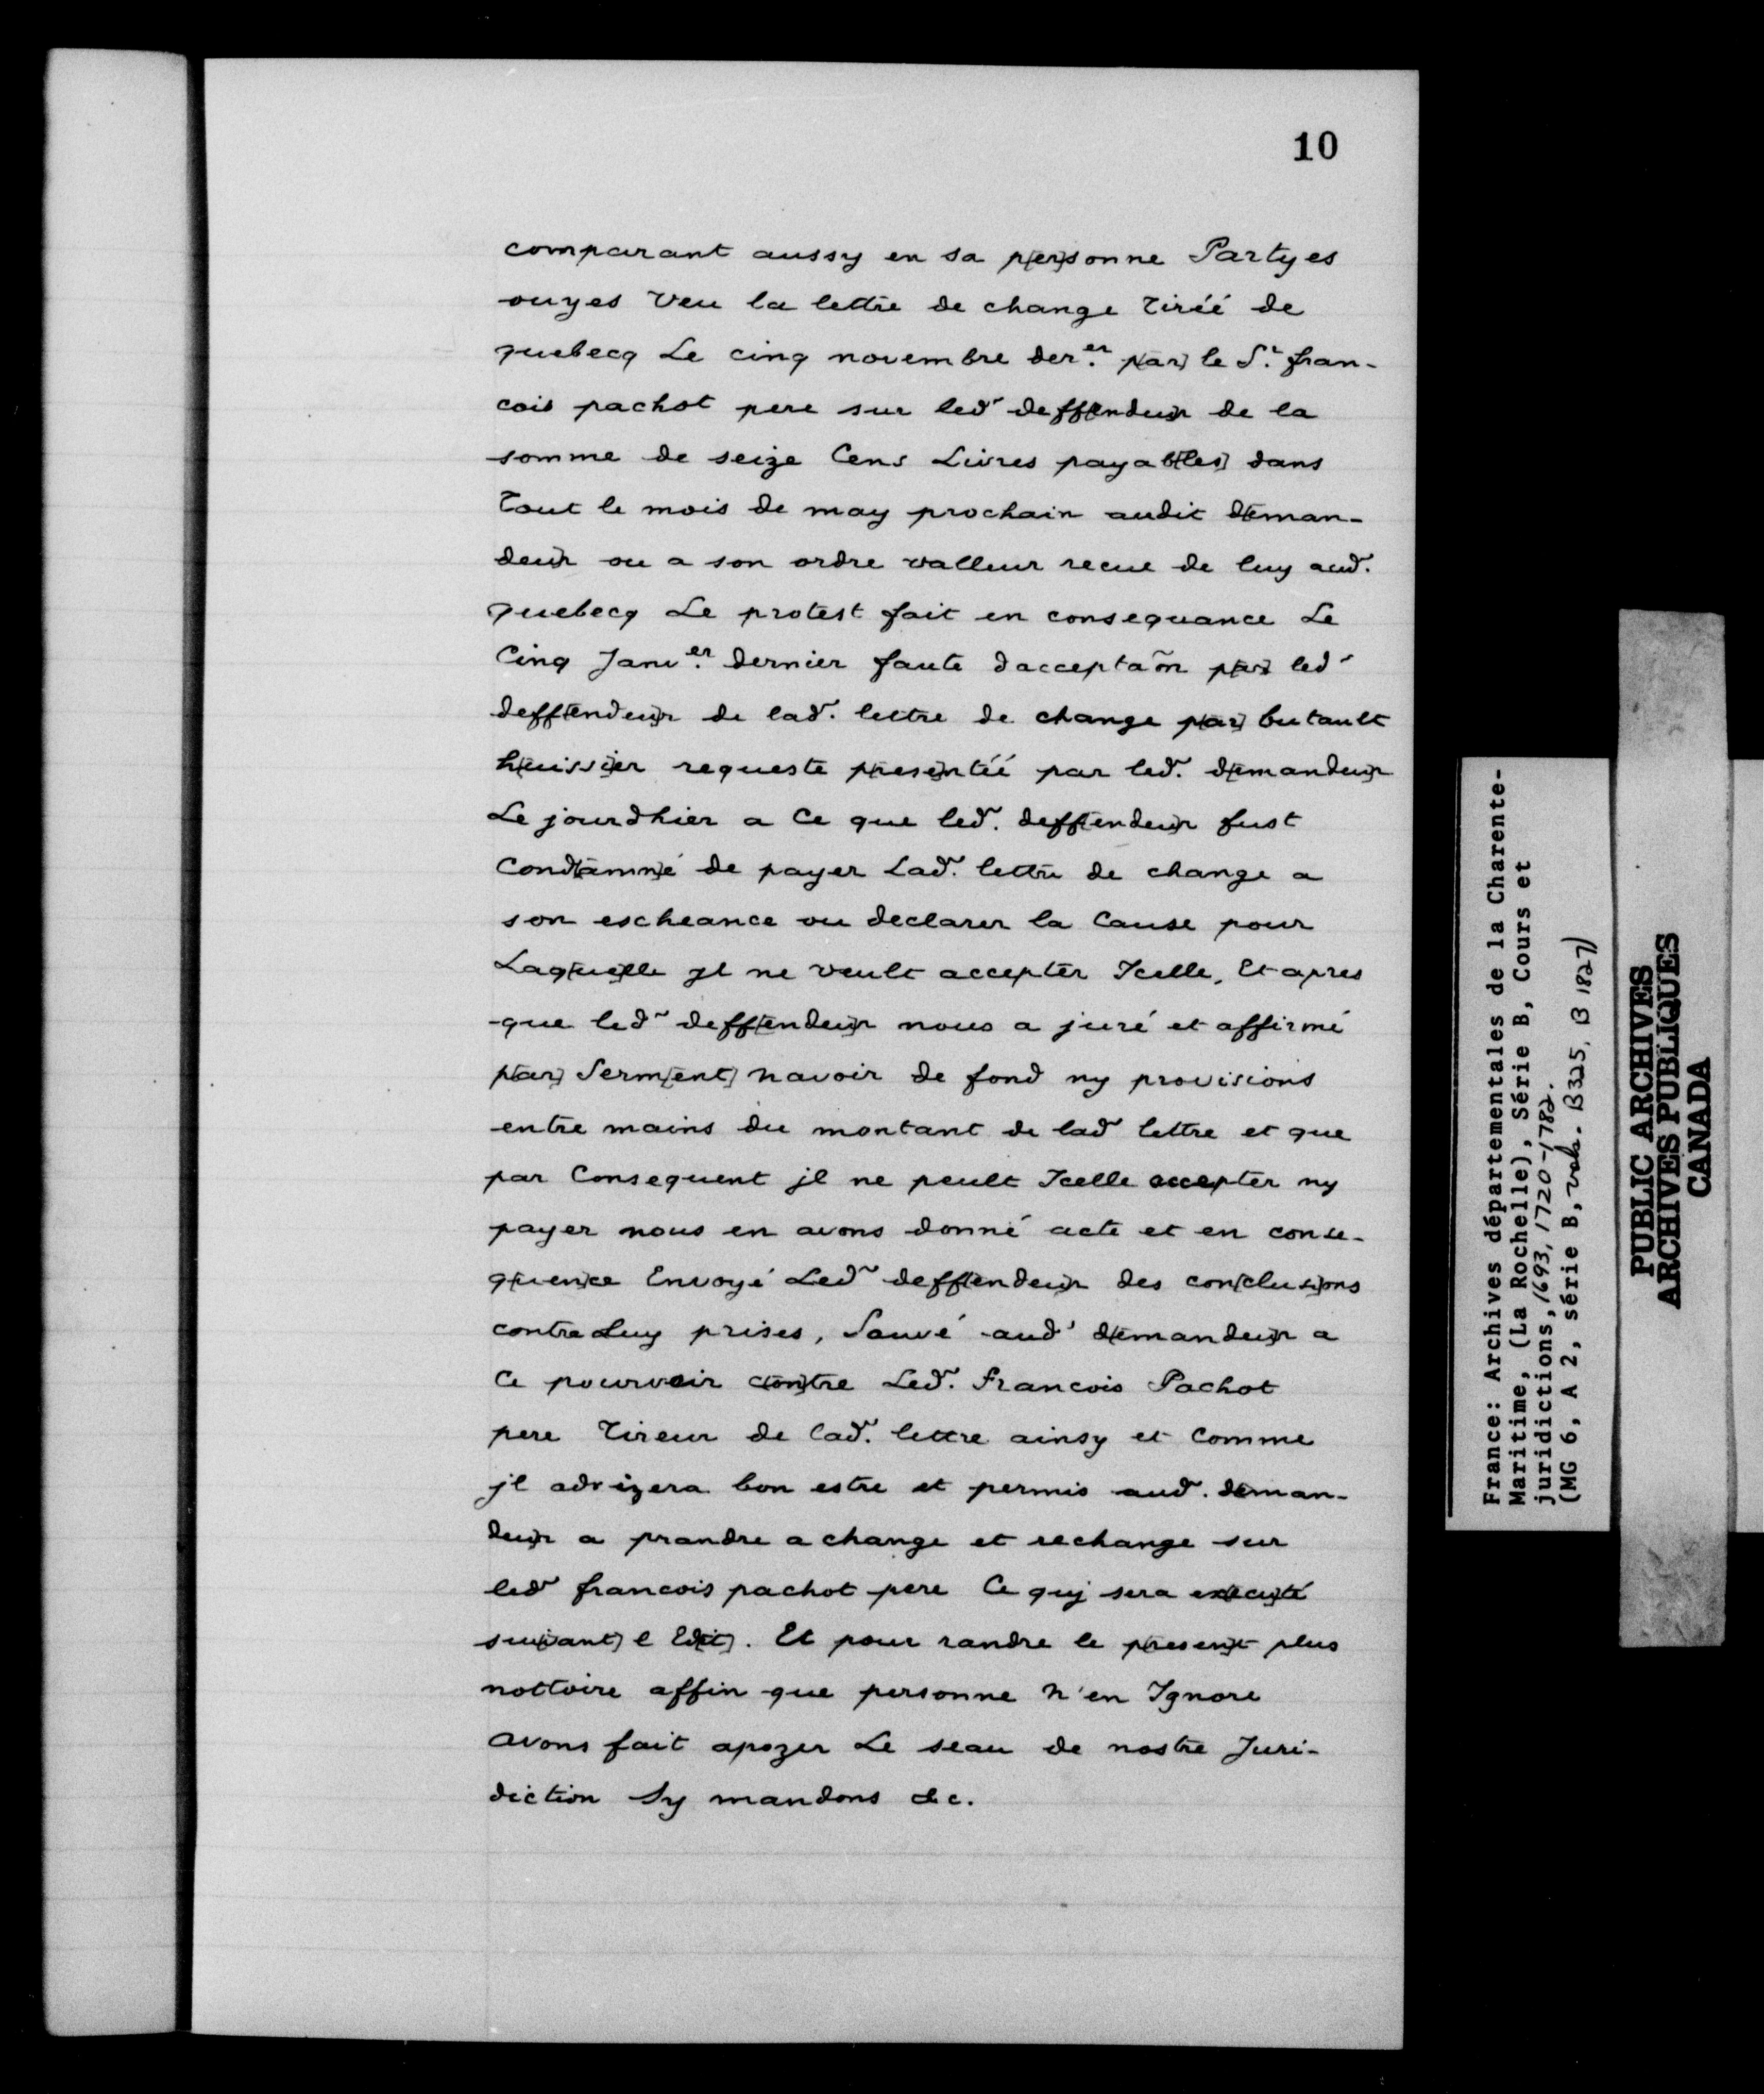 10
comparant aussy en sa p[er]sonne Partyes
ouyes Veu la lettre de change tiréé de
quebecq Le cinq novembre der.er p[ar] le S.r fran-
cois pachot pere sur led~ deff[endeu]r de la
somme de seize Cens Livres payab[les] dans
tout le mois de may prochain audit d[eman-
deu]r ou a son ordre valleur recue de luy aud~.
quebecq Le protest fait en consequance Le
Cinq Janv.er dernier faute dacceptaõn p[ar] led~
deff[endeu]r de lad~. lettre de change p[ar] butault
h[uissi]er requeste p[rese]ntéé par led~. d[emandeu]r
Le jourdhier a Ce que led~. deff[endeu]r fust
Cond[amn]é de payer Lad~. lettre de change a
son escheance ou declarer la Cause pour
Laq[ue]lle jl ne veult accepter Icelle, Et apres
que led~ deff[endeu]r nous a juré et affirmé
p[ar] Serm[ent] navoir de fond ny provisions
entre mains du montant de lad~ lettre et que
par Consequent jl ne peult Icelle accepter ny
payer nous en avons donné acte et en conse-
q[uen]ce Envoyé Led~ deff[endeu]r des con[clusi]ons
contre Luy prises, Sauvé aud~ d[emandeu]r a
Ce pourvoir c[on]tre Led~. Francois Pachot
pere Tireur de lad~. lettre ainsy et Comme
jl advizera bon estre et permis aud~. deman-
deu]r a prandre a change et rechange sur
led~ francois pachot pere Ce quj sera ex[ecu]té
sui[vant] l Ed[it]. Et pour randre le p[resen]t plus
nottoire affin que personne N'en Ignore
avons fait apozer Le seau de nostre Juri-
diction Sy mandons &c.
France: Archives départementales de la Charente-
Maritime, (La Rochelle), Série B, Cours et
juridictions, 1693, 1720-1782.
(MG 6, A 2, série B, vols. B325, B 1827)
PUBLIC ARCHIVES
ARCHIVES PUBLIQUES
CANADA